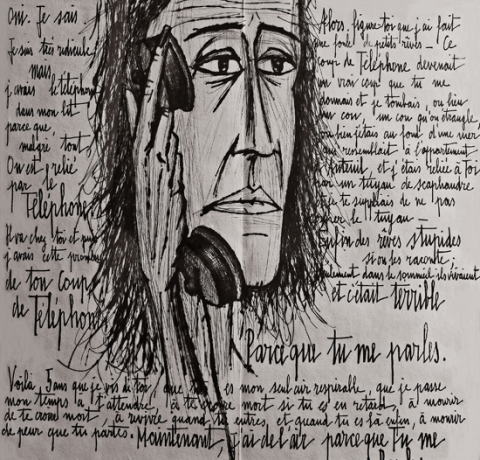 Oui. Je sais
Je suis très ridicule
mais
j'avais le téléphone
dans mon lit
parce que
malgré tout,
On est relié
par le
Téléphone.
Il va chez toi et puis
j'avais cette promesse
de ton coup
de Téléphone
Alors, figure toi que j'ai fait
une foule de petits rêves — Ce
coup de Téléphone devenait
un vrai coup que tu me
donnais et je tombais, ou bien
un cou, un cou qu'on étrangle,
ou bien j'étais au fond d'une mer
qui ressemblait à l'appartement
d'Auteuil, et j'étais reliée à Toi
par un tuyau de scaphandre
et je te suppliais de ne pas
couper le tuyau —
Enfin des rêves stupides
si on les raconte ;
seulement dans le sommeil ils vivaient
et c'était terrible
Parce que tu me parles.
Voilà, 5 ans que je vis de toi, que tu es mon seul air respirable, que je passe
mon temps à t'attendre, à te croire mort si tu es en retard, à mourir
de te croire mort, à revivre quand tu entres, et quand tu es là enfin, à mourir
de peur que tu partes. Maintenant, j'ai de l'air parce que tu me